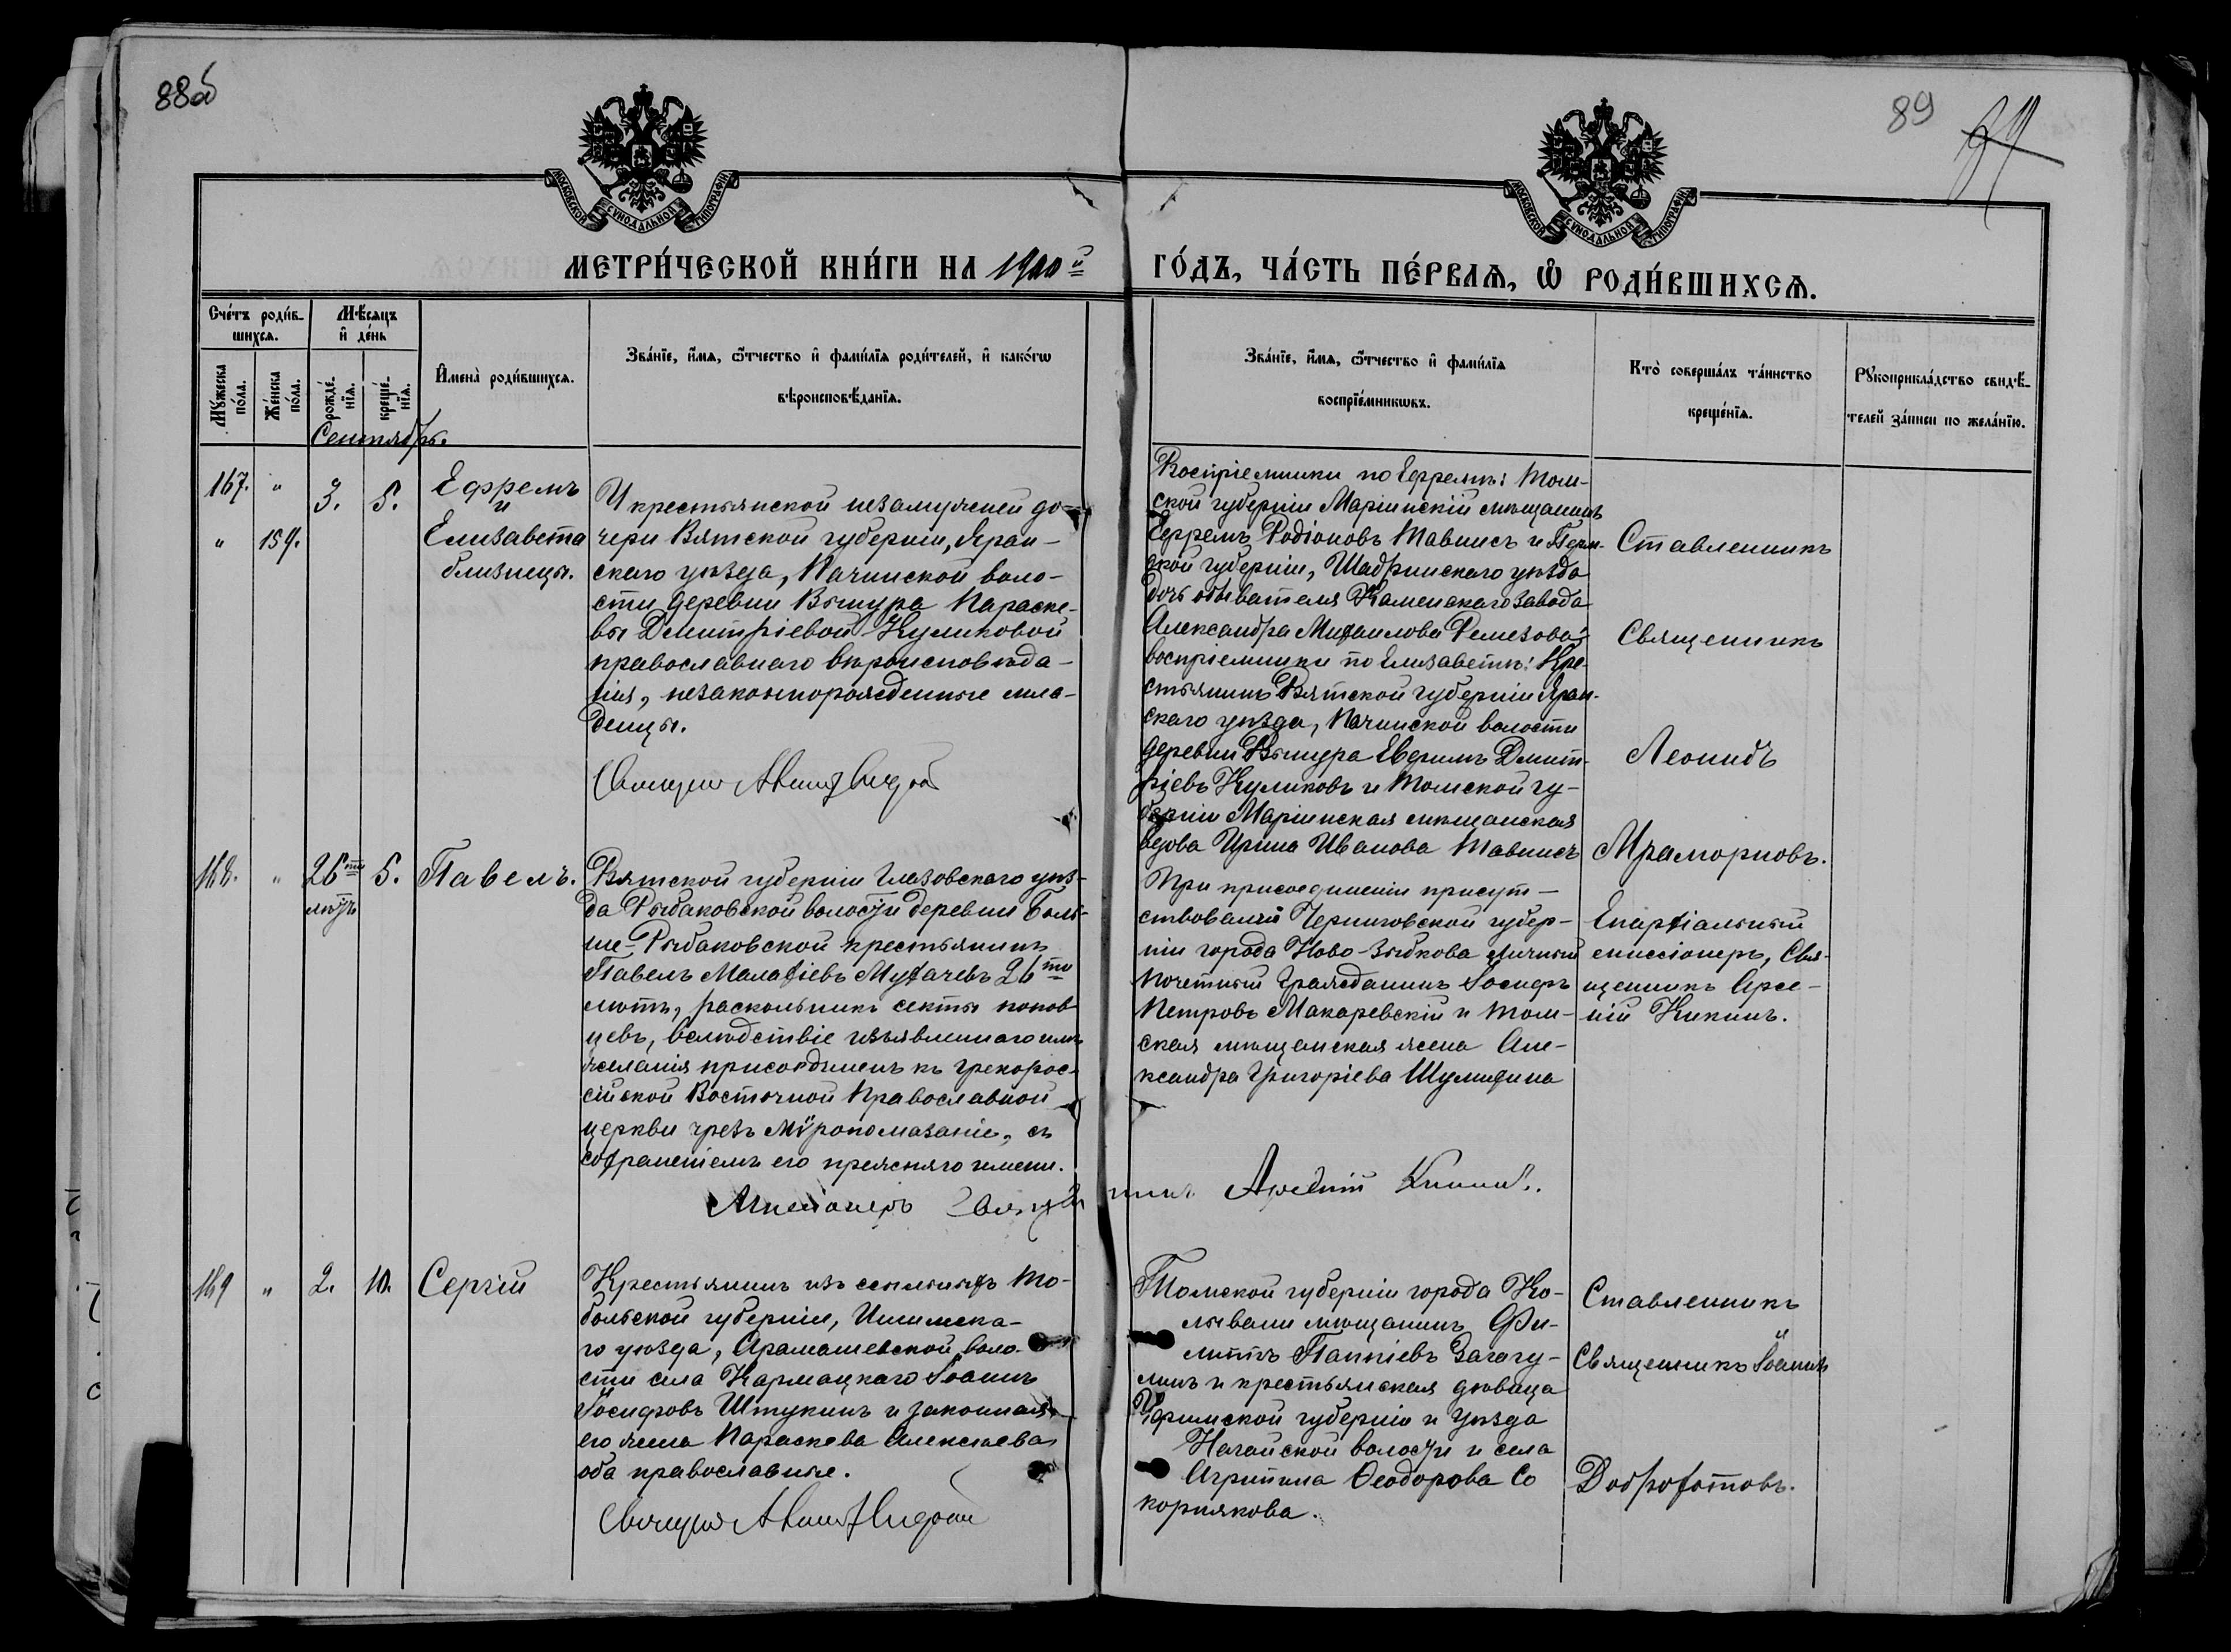 88об
89
МОСКОВСКОЙ СѴНОДАЛЬНОЙ ТИПОГРАФІИ
МОСКОВСКОЙ СѴНОДАЛЬНОЙ ТИПОГРАФІИ
МЕТРИ́ЧЕСКОЙ КНИ́ГИ НА 1900й
ГО́ДЪ, ЧА́СТЬ ПЕ́РВАѦ, Ѡ РОДИ́ВШИХСѦ.
Сче́тъ роди́в-
шихсѧ.
Мꙋ́жеска по́ла.
Же́нска по́ла.
Мѣ́сѧцъ
и де́нь
рожде́-
нїѧ.
креще́-
нїѧ.
Имена̀ роди́вшихсѧ.
Зва́нїе, и́мѧ, ѻ́тчество и фами́лїѧ роди́телей, и како́гѡ
вѣроисповѣ́данїѧ.
Зва́нїе, и́мѧ, ѻ́тчество и фами́лїѧ
воспрїе́мникѡвъ.
Кто̀ соверша́лъ та́инство
креще́нїѧ.
Рꙋкоприкла́дство свидѣ́-
телей за́писи по жела́нїю.
Сентябрь.
167. " 3. 5.
" 159.
Ефремъ
и
Елизавета
близнецы.
У крестьянской незамужней до-
чери Вятской губерніи, Яран-
скаго уѣзда, Пачинской воло-
сти деревни Вынура Параске-
вы Димитріевой Куликовой
православнаго вѣроисповѣда-
нія, незаконнорожденные мла-
денцы.
Воспріемники по Ефремѣ: Том-
ской губерніи Маріинскій мѣщанинъ
Ефремъ Родіоновъ Тавлисъ и Перм-
ской губерніи, Шадринскаго уѣзда
дочь обывателя Каменскаго завода
Александра Михаилова Ремезова;
воспріемники по Елизаветѣ: Кре-
стьянинъ Вятской губерніи Яран-
скаго уѣзда, Пачинской волости
деревни Вынура Евфимъ Димит-
ріевъ Куликовъ и Томской гу-
берніи Маріинская мѣщанская
вдова Ирина Иванова Тавлисъ
Ставленникъ
Священникъ
Леонидъ
Мраморновъ.
168. " 26ти лѣтъ 5. Павелъ.
Вятской губерніи Глазовскаго уѣз-
да Рыбаковской волости деревни Боль-
ше-Рыбаковской крестьянинъ
Павелъ Малахіевъ Мухачевъ 26ти
лѣтъ, раскольникъ секты попов-
цевъ, вслѣдствіе изъявленнаго имъ
желанія присоединенъ къ грекорос-
сійской Восточной Православной
церкви чрезъ мѵропомазаніе, съ
сохраненіемъ его прежняго имени.
Миссіонеръ Священникъ Арсеній Кикинъ.
При присоединеніи присут-
ствовали Черниговской губер-
ніи города Ново-Зыбкова личный
почетный гражданинъ Іосифъ
Петровъ Макаревскій и Том-
ская мѣщанская жена Але-
ксандра Григоріева Шумихина
Епархіальный
миссіонеръ, Свя-
щенникъ Арсе-
ній Кикинъ.
169 " 2. 10. Сергій
Крестьянинъ изъ ссыльныхъ То-
больской губерніи, Ишимска-
го уѣзда, Арамашевской воло-
сти села Кармацкаго Іоаннъ
Іосифовъ Штукинъ и законная
его жена Параскева Алексѣева
оба православные.
Томской губерніи города Ко-
лывани мѣщанинъ Фи-
липпъ Загогу-
линъ и крестьянская дѣвица
Уфимской губерніи и уѣзда
Нагайской волости и села
Агрипина Ѳеодорова Со
корнякова.
Ставленникъ
Священникъ Іоаннъ
Доброхотовъ.